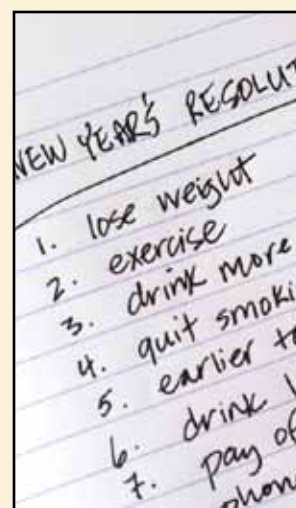 NEW YEAR'S RESOLUT
1. lose weight
2. exercise
3. drink more
4. quit smoki
5. earlier to
6. drink l
7. pay of
phon